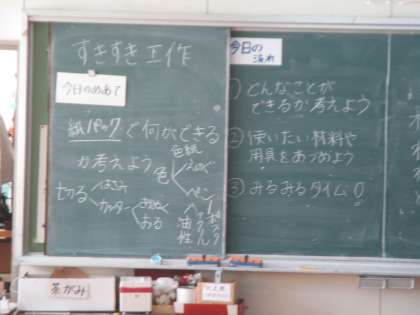 すきすき工作
今日のめあて
紙パックで何ができる
か考えよう
色
色紙
えのぐ
ペン
切る
はさみ
カッター
きる
油性
アクリル
ポスター
今日の
流れ
① どんなことが
できるか考えよう
② 使いたい材料や
用具をあつめよう
③ みるみるタイム!!
茶がみ